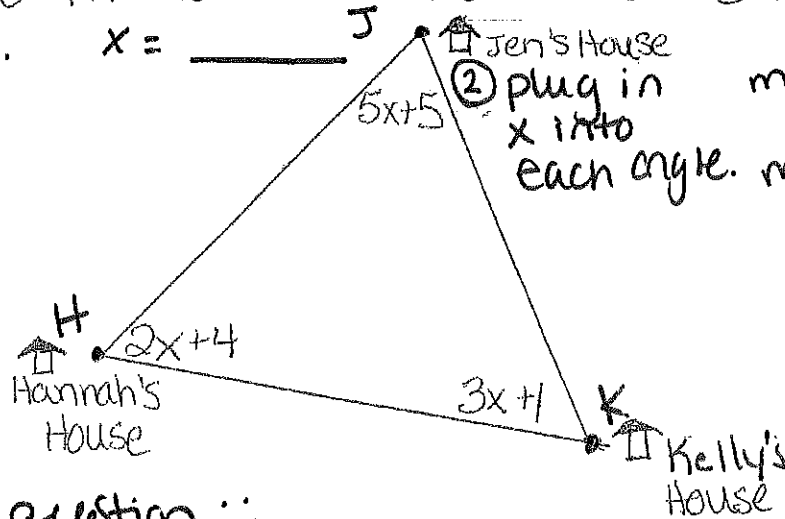 x = ______
J
Jen's House
② plug in
x into
each angle.
m
m
5x+5
H
2x+4
Hannah's
House
3x+1
K
Kelly's
House
question